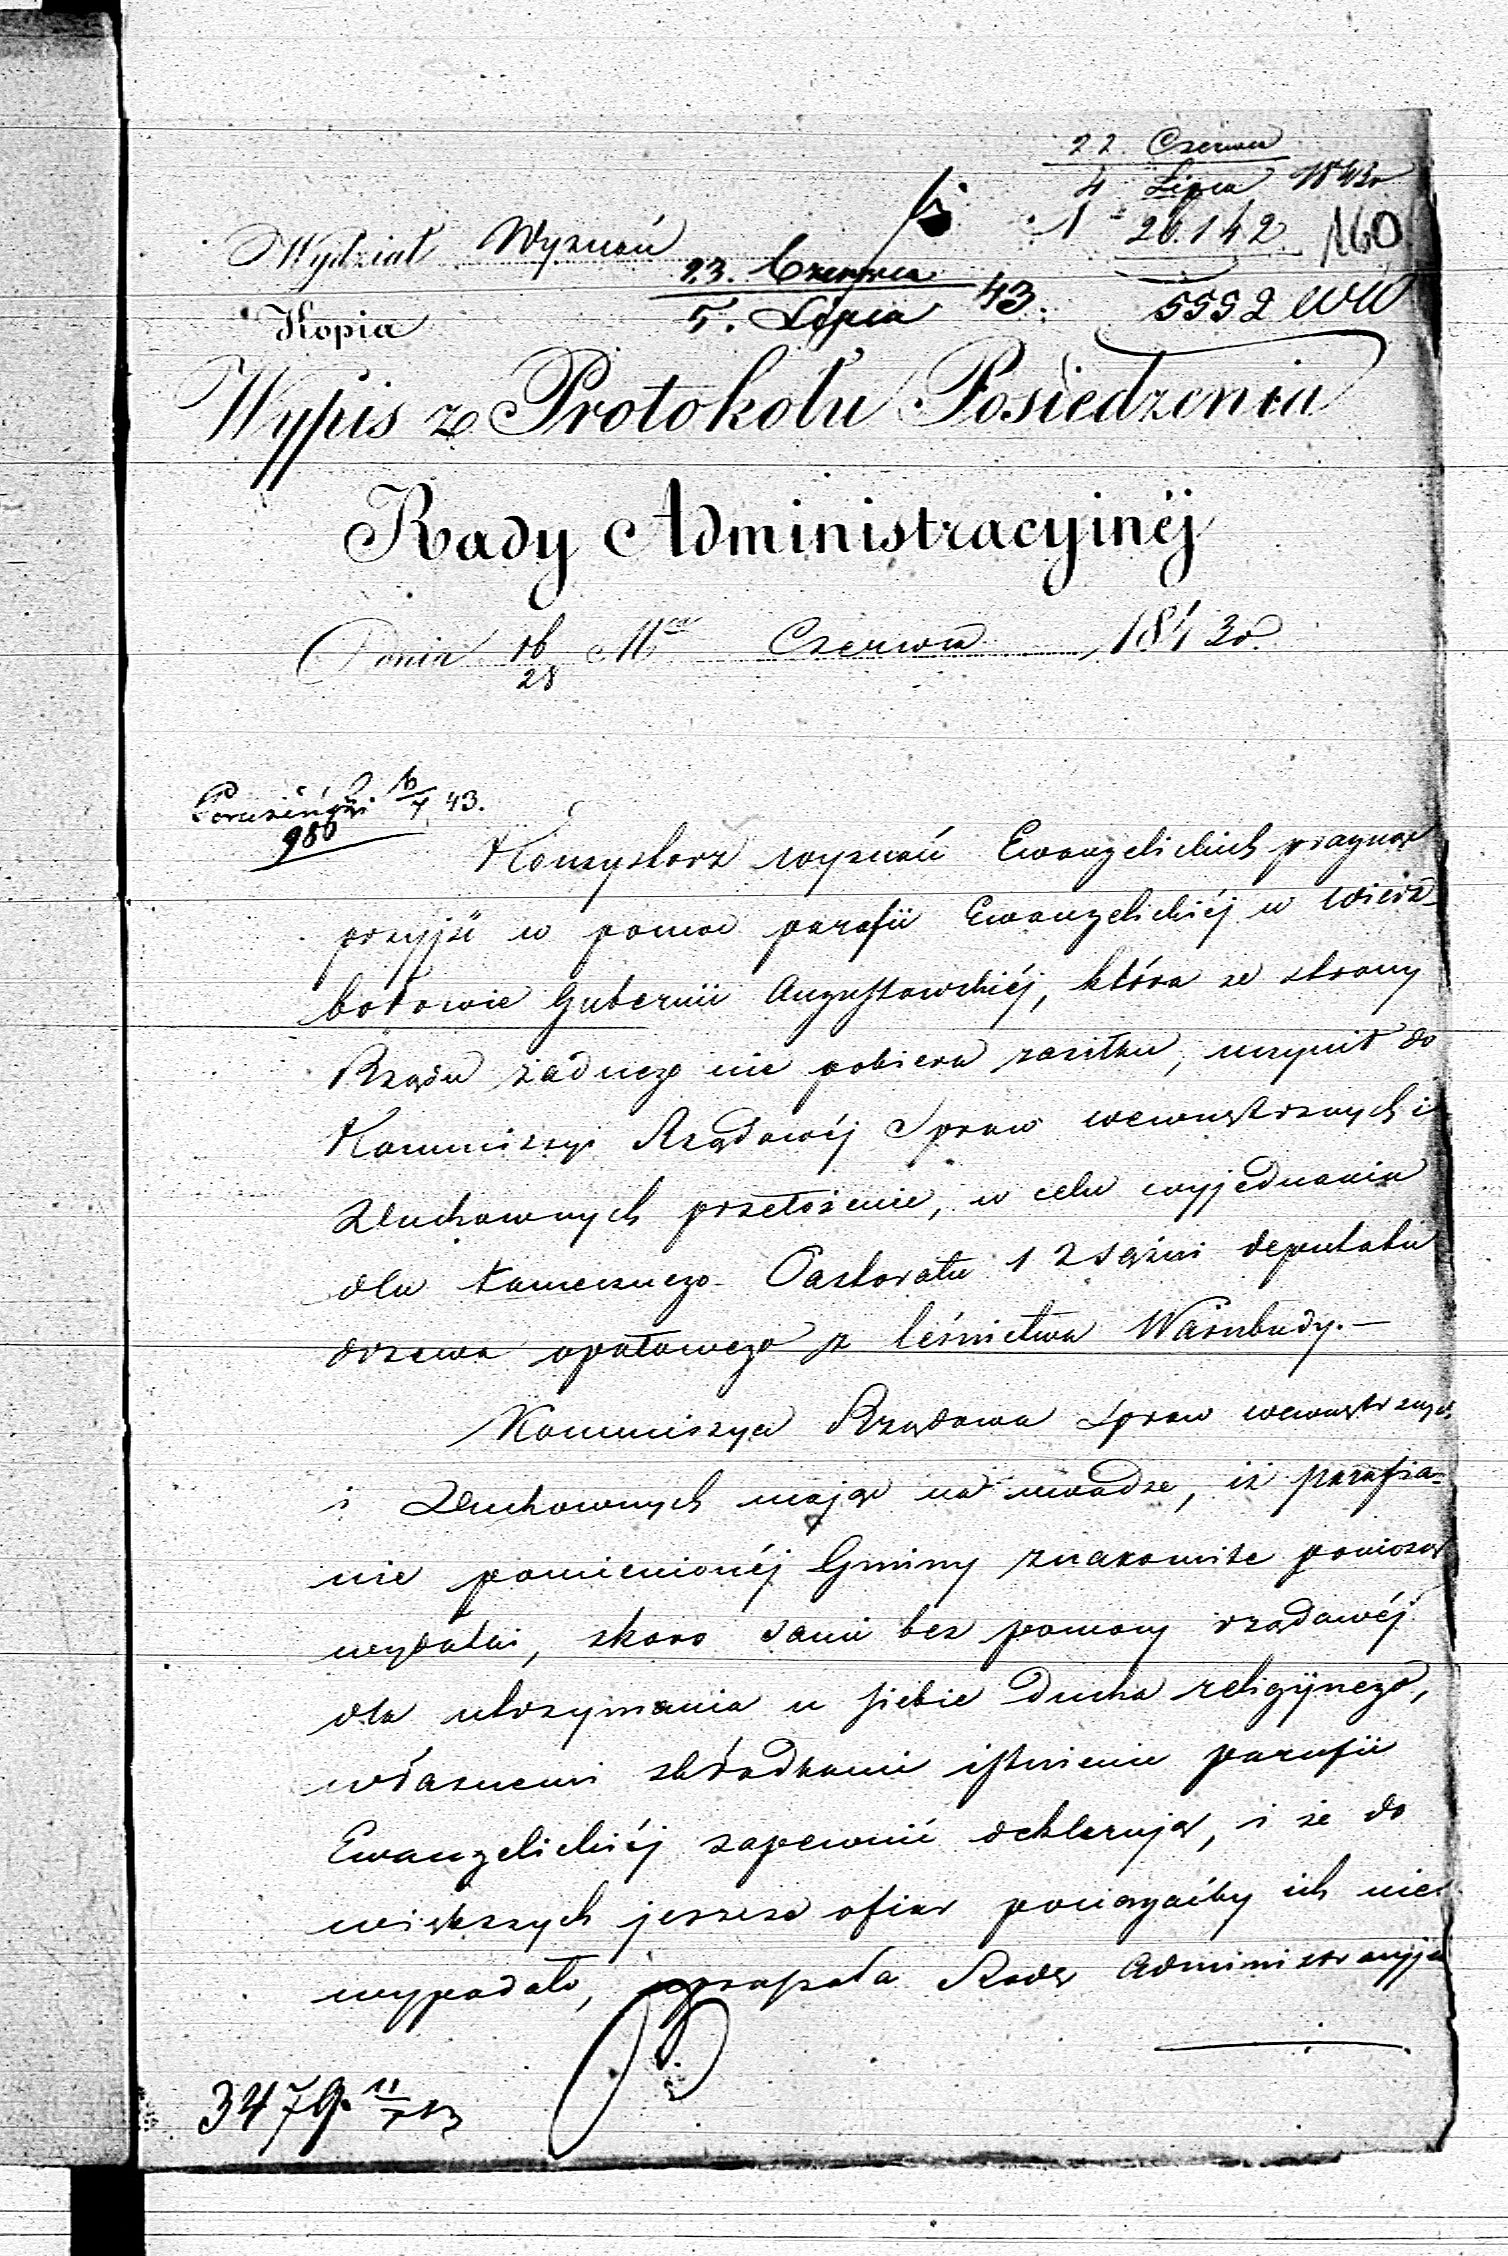 22 Czerwca
4 Lipca 1843r
N 26.142 160
Wydział Wyznań
23. Czerwca
5. Lipca 43.
5992 WW
Kopia
Wypis z Protokołu Posiedzenia
Rady Administracyinéj
Dnia 16 Mca Czerwca 1843r.
28
6/7 43.
980
Konsystorz wyznań Ewangelickich pragnąc
przyjść w pomoc parafii Ewangelickiéj w Wierz-
bołowie Gubernii Augustowskiéj, która ze strony
Rządu żadnego nie pobiera zasiłku, uczynił do
Kommissyi Rządowéj Spraw wewnętrznych i
Duchownych przełożenie, w celu wyjednania
dla tamecznego Pastoratu 12 sążni deputatu
drzewa opałowego z leśnictwa Wasnbudy.—
Kommissya Rządowa Spraw wewnętrznych
i Duchownych mając na uwadze, iż parafia-
nie pomienionéj Gminy znakomite ponoszą
wydatki, skoro sami bez pomocy rządowéj
dla utrzymania u siebie ducha religijnego,
własnemi składkami istnienie parafii
Ewangelickiéj zapewnić deklarują, i że do
większych jeszcze ofiar pociągaćby ich nie
wypadało, Radę Administracyją
3479. 11/7 43